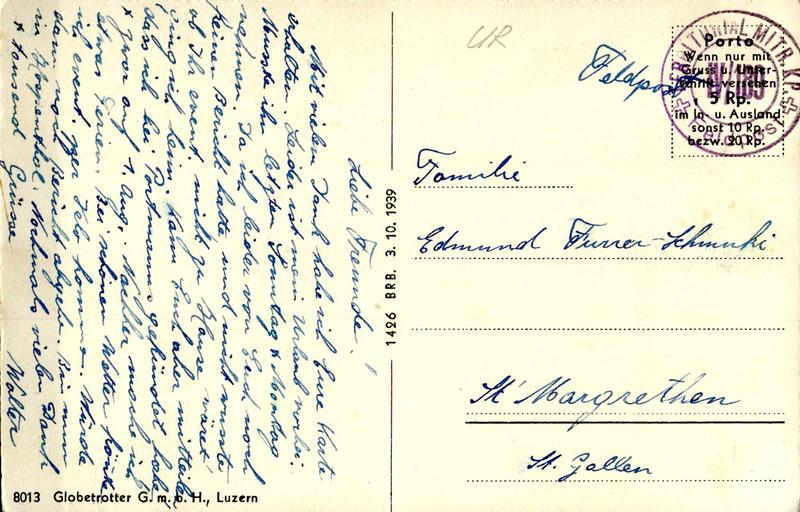 Liebe Freunde!
Mit vielen Dank habe ich Eure Karte
erhalten. Leider ist mein Urlaub vorbei.
Musste ihn letzten Sonntag & Montag
nehmen. Da ich leider von Euch noch
keinen Bericht hatte und nicht wusste
ob Ihr event. nicht zu Hause wäret
ging ich heim. Kann Euch aber mitteilen
dass ich bei Portmanns gekündet habe
& zwar auf 1. Aug. Nachher mache ich
etwas Ferien. Bei schönem Wetter könnte
ich event. per Velo kommen. Würde
dann noch Bericht abgeben. Bin nun
in Hospenthal. Nochmals vielen Dank
& tausend Grüsse
Walter
8013 Globetrotter G. m. b. H., Luzern
1426 BRB. 3. 10. 1939
UR
Feldpost
Porto
Wenn nur mit
Gruss u. Unter-
schrift versehen
5 Rp.
im In- u. Ausland
sonst 10 Rp.
bezw. 20 Rp.
TERRITORIAL MITR. KP.
IV/189
Familie
Edmund Furrer-Schmuki
St. Margrethen
St. Gallen